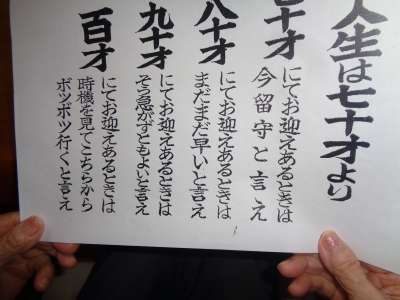 人生は七十才より
七十才
にてお迎えあるときは
今留守と言え
八十才
にてお迎えあるときは
まだまだ早いと言え
九十才
にてお迎えあるときは
そう急がずともよいと言え
百才
にてお迎えあるときは
時機を見てこちらから
ボツボツ行くと言え